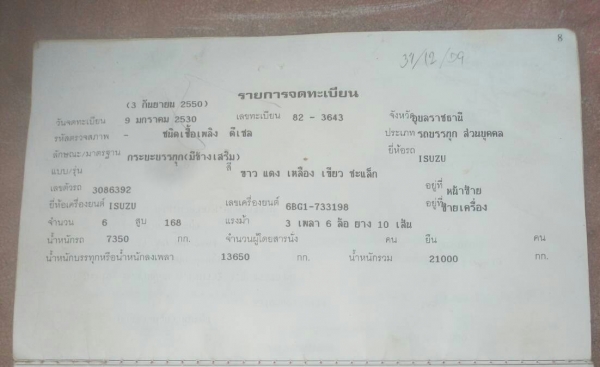 8
31/12/59
รายการจดทะเบียน
(3 กันยายน 2550)
วันจดทะเบียน 9 มกราคม 2530 เลขทะเบียน 82 - 3643 จังหวัด อุบลราชธานี
รหัสตรวจสภาพ - ชนิดเชื้อเพลิง ดีเซล ประเภท รถบรรทุก ส่วนบุคคล
ลักษณะ/มาตรฐาน กระบะบรรทุก(มีข้างเสริม) ยี่ห้อรถ ISUZU
แบบ/รุ่น สี ขาว แดง เหลือง เขียว ชะแล็ก
เลขตัวรถ 3086392 อยู่ที่ หน้าซ้าย
ยี่ห้อเครื่องยนต์ ISUZU เลขเครื่องยนต์ 6BG1-733198 อยู่ที่ ซ้ายเครื่อง
จำนวน 6 สูบ 168 แรงม้า 3 เพลา 6 ล้อ ยาง 10 เส้น
น้ำหนักรถ 7350 กก. จำนวนผู้โดยสารนั่ง คน ยืน คน
น้ำหนักบรรทุกหรือน้ำหนักลงเพลา 13650 กก. น้ำหนักรวม 21000 กก.